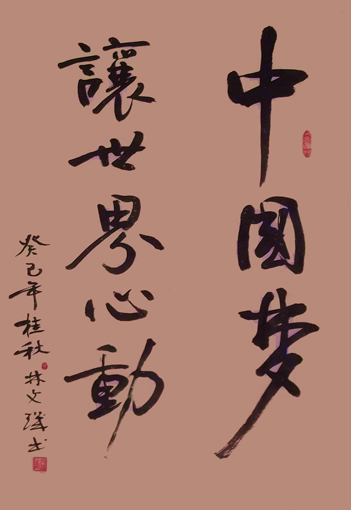 中國梦
讓世界心動
癸巳年桂秋林文書